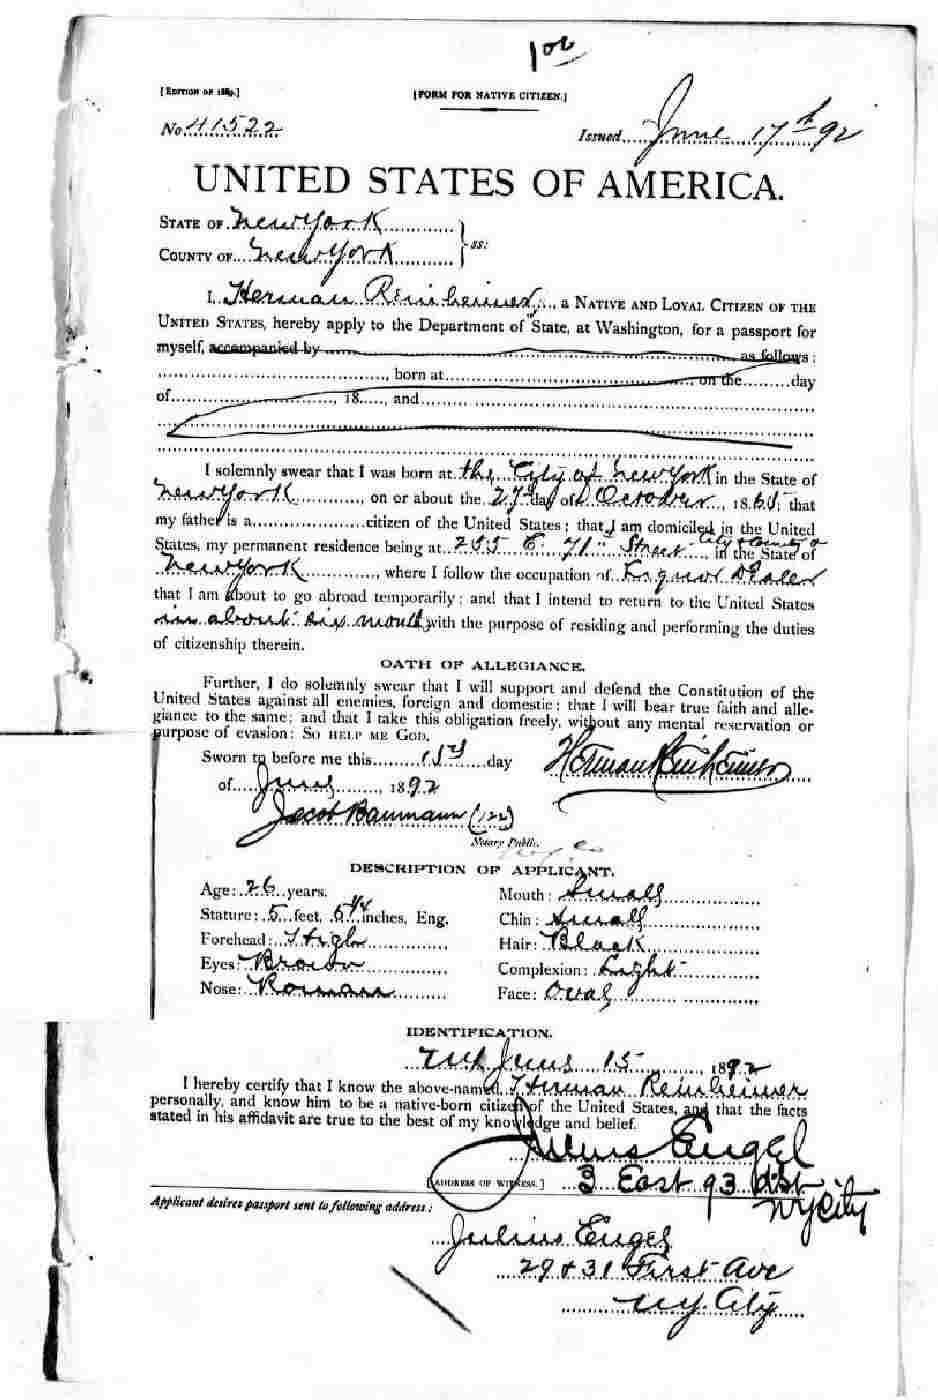 1 00
[EDITION OF 1889.]
[FORM FOR NATIVE CITIZEN.]
No. 41522
Issued June 17th 92
UNITED STATES OF AMERICA.
STATE OF New York
COUNTY OF New York } ss:
I, Herman Reinheimer, a NATIVE AND LOYAL CITIZEN OF THE
UNITED STATES, hereby apply to the Department of State, at Washington, for a passport for
myself, accompanied by as follows:
, born at on the day
of , 18 , and
I solemnly swear that I was born at the City of New York in the State of
New York , on or about the 27th day of October, 1865; that
my father is a citizen of the United States; that I am domiciled in the United
States, my permanent residence being at 255 E. 71st Street City & County of in the State of
New York , where I follow the occupation of Liquor Dealer
that I am about to go abroad temporarily; and that I intend to return to the United States
in about six months with the purpose of residing and performing the duties
of citizenship therein.
OATH OF ALLEGIANCE.
Further, I do solemnly swear that I will support and defend the Constitution of the
United States against all enemies, foreign and domestic; that I will bear true faith and alle-
giance to the same; and that I take this obligation freely, without any mental reservation or
purpose of evasion: SO HELP ME GOD.
Sworn to before me this 15th day
Herman Reinheimer
of June , 1892
Jacob Baumann (122)
Notary Public.
N.Y. Co
DESCRIPTION OF APPLICANT.
Age: 26 years.
Mouth: Small
Stature: 5 feet, 6 1/4 inches, Eng.
Chin: Small
Forehead: High
Hair: Black
Eyes: Brown
Complexion: Light
Nose: Roman
Face: Oval
IDENTIFICATION.
N.Y. June 15 1892
I hereby certify that I know the above-named Herman Reinheimer
personally, and know him to be a native-born citizen of the United States, and that the facts
stated in his affidavit are true to the best of my knowledge and belief.
Julius Engel
[ADDRESS OF WITNESS.] 3 East 93d St
NY City
Applicant desires passport sent to following address:
Julius Engel
29 & 31 First Ave
N.Y. City